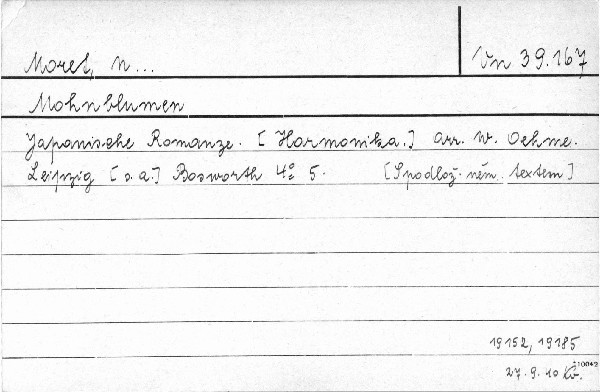 Moret, N...
Vn 39.167
Mohnblumen
Japanische Romanze. [Harmonika.] arr. W. Oehme.
Leipzig [s.a.] Bosworth 4° 5. [S podlož. něm. textem]
19152, 19185
27.9.10